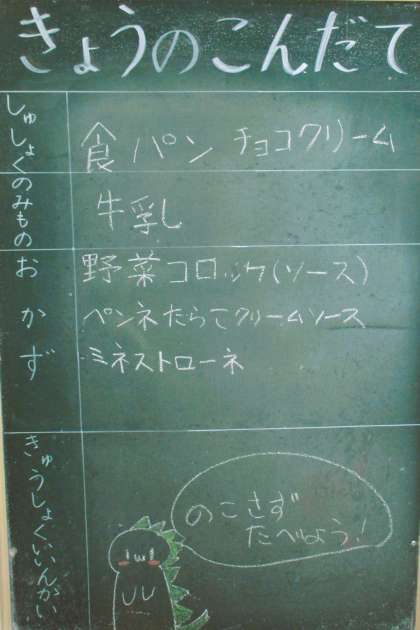 きょうのこんだて
しゅしょく
食パン チョコクリーム
のみもの
牛乳
おかず
野菜コロッケ(ソース)
ペンネたらこクリームソース
ミネストローネ
きゅうしょくいいんかい
のこさず
たべよう!